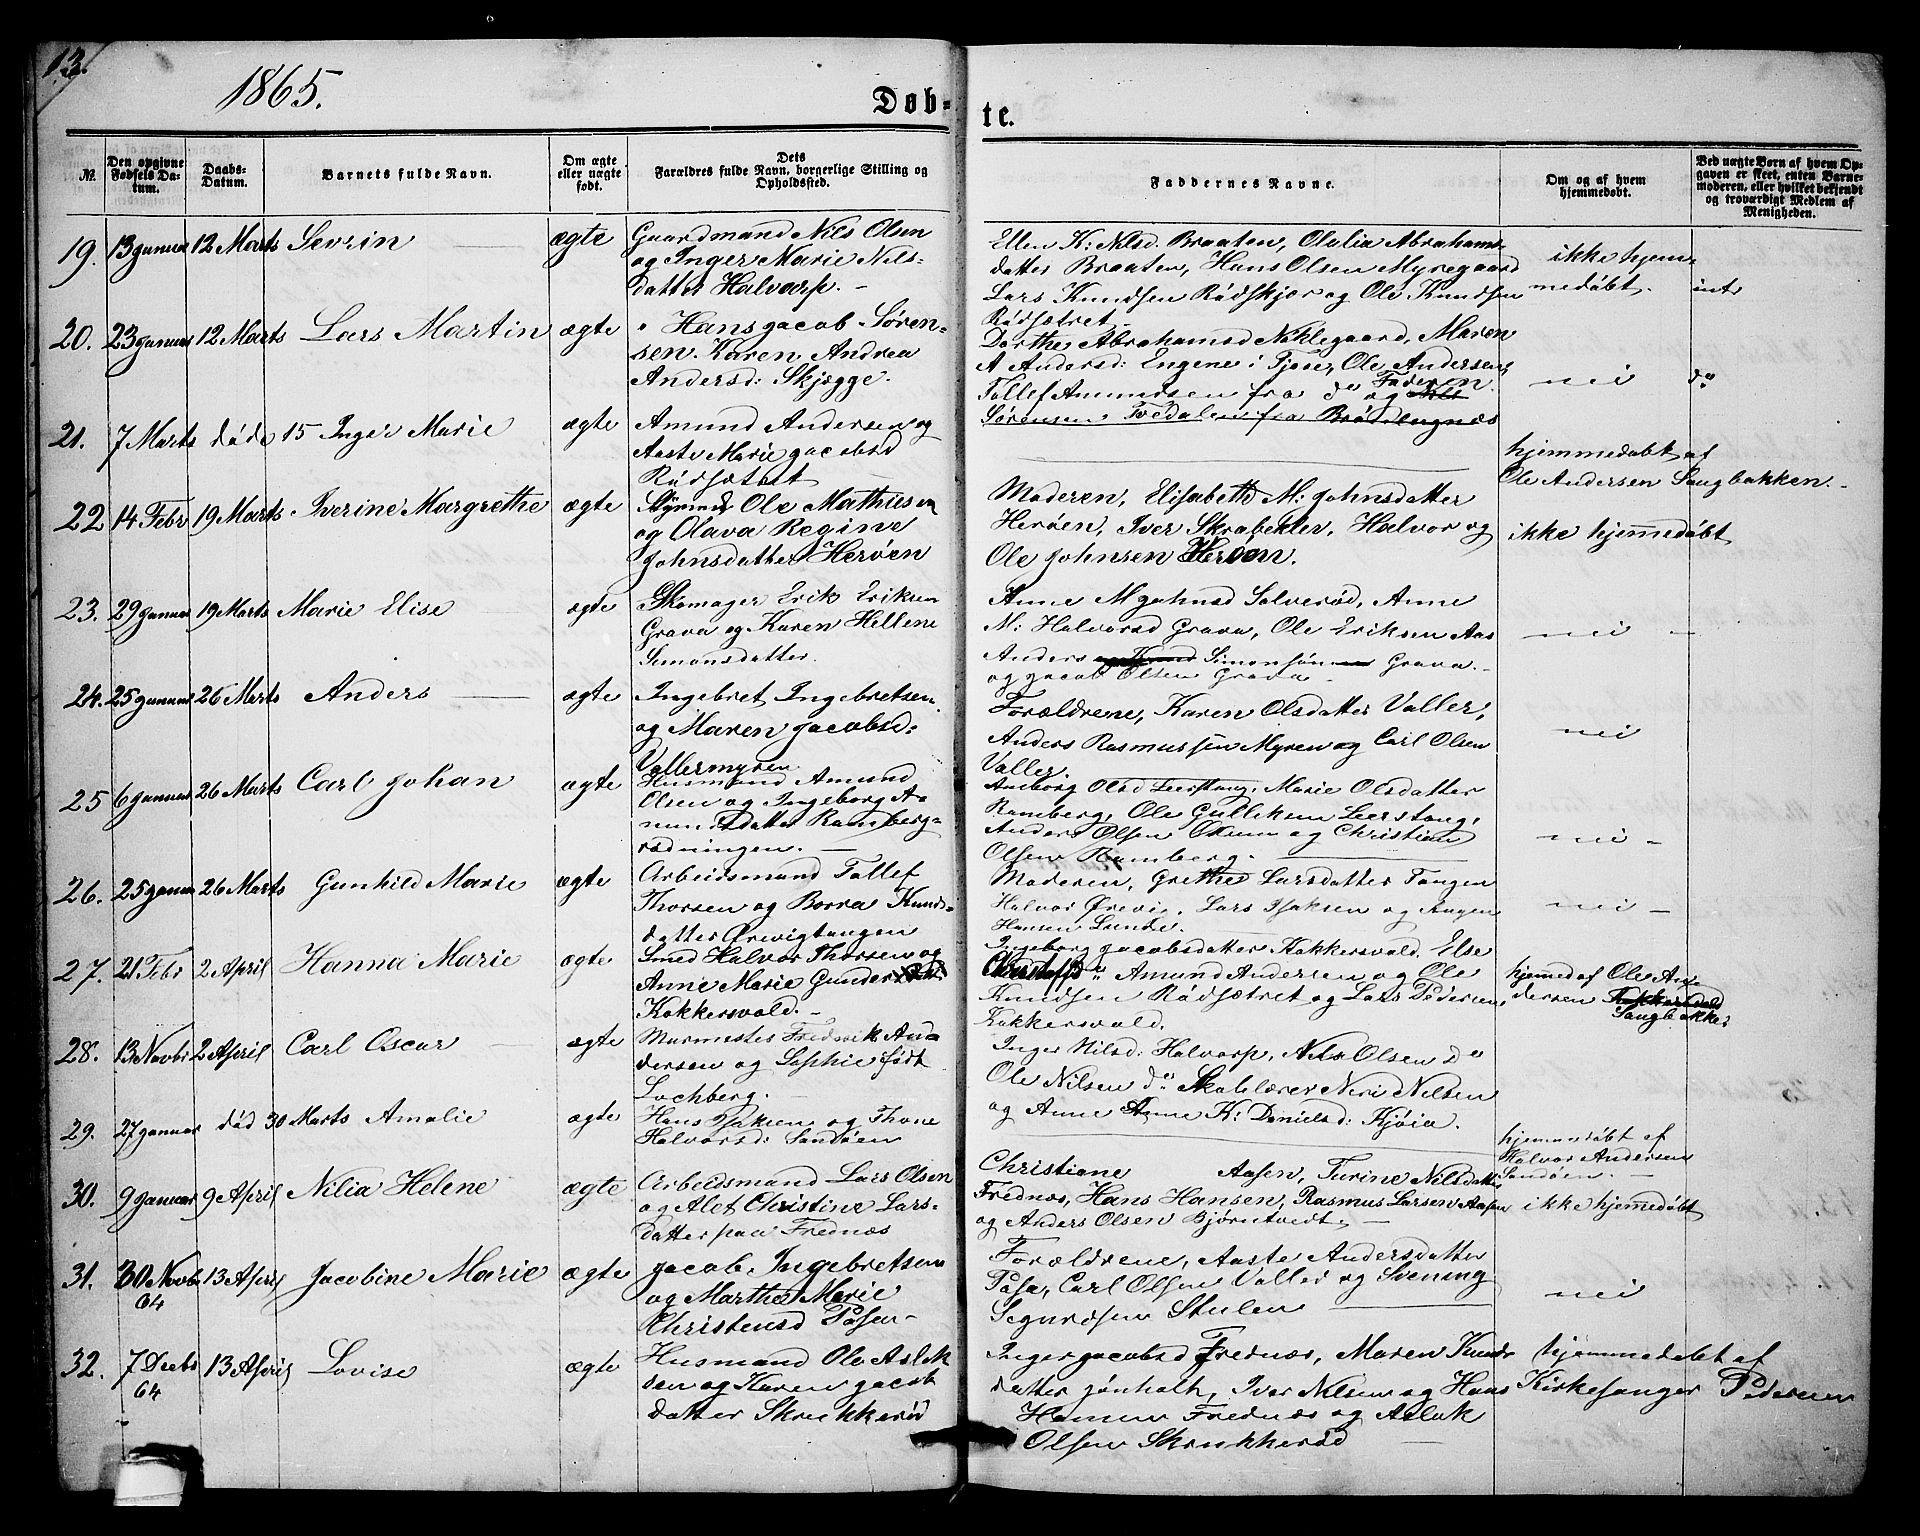 13.
1865.
Døb-
te.
№.
Den opgivne Fødsels Da-tum.
Daabs-Datum.
Barnets fulde Navn.
Om ægte eller uægte født.
Dets Forældres fulde Navn, borgerlige Stilling og Opholdssted.
Faddernes Navne.
Om og af hvem hjemmedøbt.
Ved uægte Børn af hvem Op-gaven er skeet, enten Barne-moderen, eller hvilket bekjendt og troværdigt Medlem af Menigheden.
19. 13 Januar 12 Marts Severin ægte
Gaardmand Nils Olsen
og Inger Marie Nils-
datter Halvarp. -
Ellen K: Nilsd. Braaten, Olalia Abrahams
datter Braaten, Hans Olsen Myregaard
Lars Knudsen Rødskjær og Ole Knudsen
Rødsætret.
ikke hjem-
medøbt. intr
20. 23 Januar 12 Marts Lars Martin ægte
" Hans Jacob Søren-
sen. Karen Andrea
Andersd: Skjegge.
Dorthe Abrahamsd Nøklegaard, Maren
A Andersd: Engene i Tjøse, Ole Andersen,
Tollef Amundsen fra do og Faderen
Sørensen
nei do
21. 7 Marts døde 15 Inger Marie ægte
Amund Andersen og
Aaste Marie Jacobsd
Rødsætret
hjemmedøbt af
Ole Andersen Saugbakken. -
22 14 Febr 19 Marts Iverine Margrethe ægte
Styrmd Ole Mathisen
og Olava Regine
Johnsdatter Herøen
Moderen, Elisabeth M: Johnsdatter
Herøen, Iver Skrabeklev, Halvor og
Ole Johnsen Herøen.
ikke hjemmedøbt
23. 29 Januar 19 Marts Marie Elise ægte
Skomager Erik Eriksen
Grava og Karen Hellene
Simonsdatter.
Anne M Johnsd Solverød, Anne
M: Halvorsd Grava, Ole Eriksen Aas
Anders Simonsøn Grava.
og Jacob Olsen Grava -
nei -
24. 25 Januar 26 Marts Anders ægte
Ingebret Ingebretsen
og Maren Jacobsd:
Vallermyren
Forældrene, Karen Olsdatter Valler,
Anders Rasmussen Myren og Carl Olsen
Valler.
nei
25 6 Januar 26 Marts Carl Johan ægte
Husmand Amund
Olsen og Ingeborg A-
mundsdatter Ramberg-
rødningen. -
Anborg Olsd Leerstang, Marie Olsdatter
Ramberg, Ole Gulliksen Leerstang,
Anders Olsen Okum og Christian
Olsen Ramberg. -
nei -
26. 25 Januar 26 Marts Gunhild Marie ægte
Arbeidsmand Tollef
Thorsen og Borra Knuds-
datter Ørevigtangen
Moderen, Grethe Larsdatter Tangen
Halvor Ørevig, Lars Isaksen og
Hansen Lunde.
nei -
27. 21 Febr 2 April Hanna Marie ægte
Smed Halvor Thorsen og
Anne Marie Gunders
Kokkersvold. -
Ingeborg Jacobsdatter Kokkersvold, Else
Christoffsd " Amund Andersen og Ole
Knudsen Rødsætret og Lars Pedersen
Kokkersvold.
hjemmed af Ole An-
dersen
Saugbakken
28. 13 Novbr 2 April Carl Oscar ægte
Murmester Frederik An-
dersen og Sophie født
Lochberg. -
Inger Nilsd: Halvarp, Nils Olsen do
Ole Nilsen do Skolelærer Neri Nilsen
og Anne K: Danielsd: Kjøia.
29. 27 Januar død 30 Marts Amalie ægte
Hans Isaksen og Thone
Halvorsd: Sandøen
hjemmedøbt af
Halvor Andersen
Sandøen. -
30. 9 Januar 9 April Nilia Helene ægte
Arbeidsmand Lars Olsen
og Alet Christine Lars-
datter paa Frednæs
Christiane Aasen, Turine Nilsdatter
Frednæs, Hans Hansen, Rasmus Larsen Aasen
og Anders Olsen Bjørntvedt. -
ikke hjemmedøbt
31. 30 Novbr 64 13 April Jacobine Marie ægte
Jacob Ingebretsen
og Marthe Marie
Christensd Pasen -
Forældrene, Aaste Andersdatter
Pasa, Carl Olsen Valler og Svening
Segurdsen Stulen
nei
32. 7 Decbr 64 13 April Lovise ægte
Husmand Ole Aslak
sen og Karen Jacobs
datter Skrukkerød
Inger Jacobsd Frednæs, Maren Knuds
datter Jønholt, Iver Nilsen og Hans
Hansen Frednæs og Aslak
Olsen Skrukkerød
hjemmedøbt af
Kirkesanger Pedersen